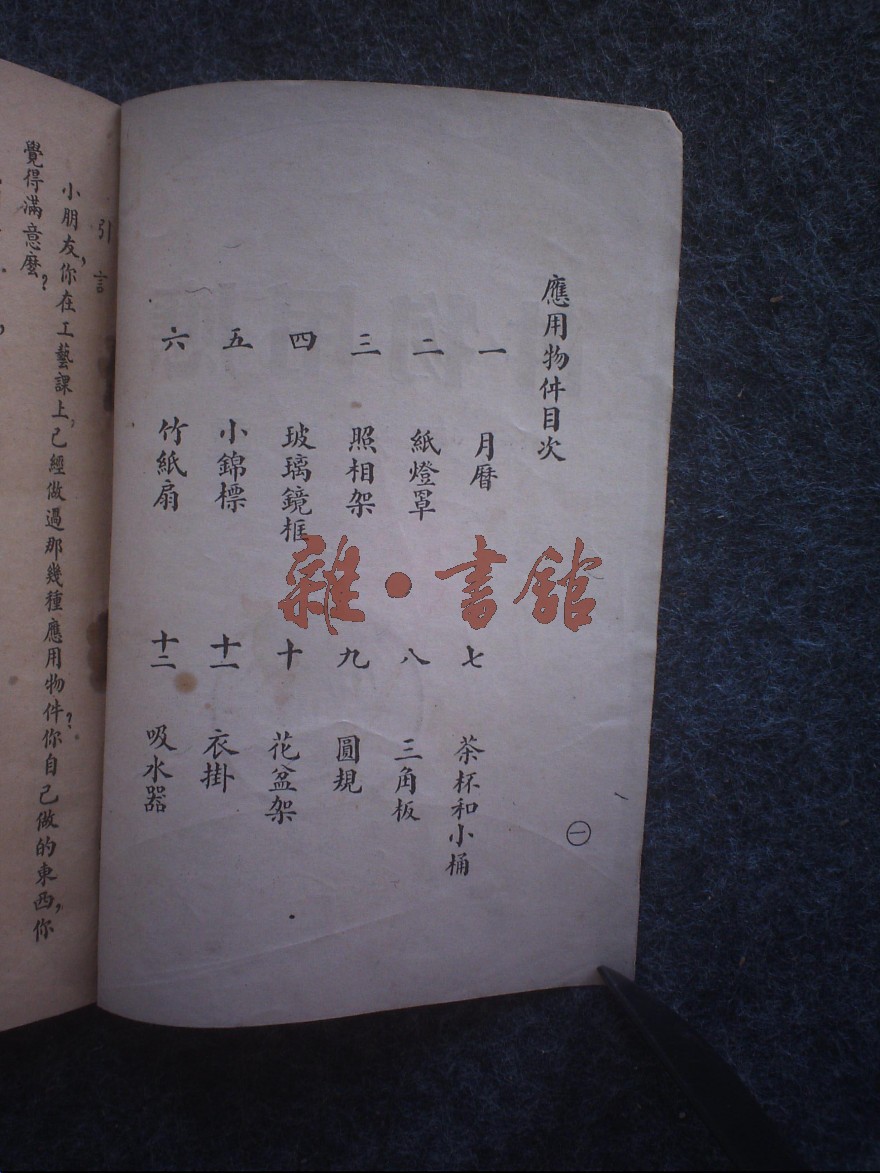 應用物件目次
一 月曆
二 紙燈罩
三 照相架
四 玻璃鏡框
五 小錦標
六 竹紙扇
七 茶杯和小桶
八 三角板
九 圓規
十 花盆架
十一 衣掛
十二 吸水器
㊀
引言
小朋友,你在工藝課上,已經做過那幾種應用物件?你自己做的東西,你
覺得滿意麼?
雜·書館